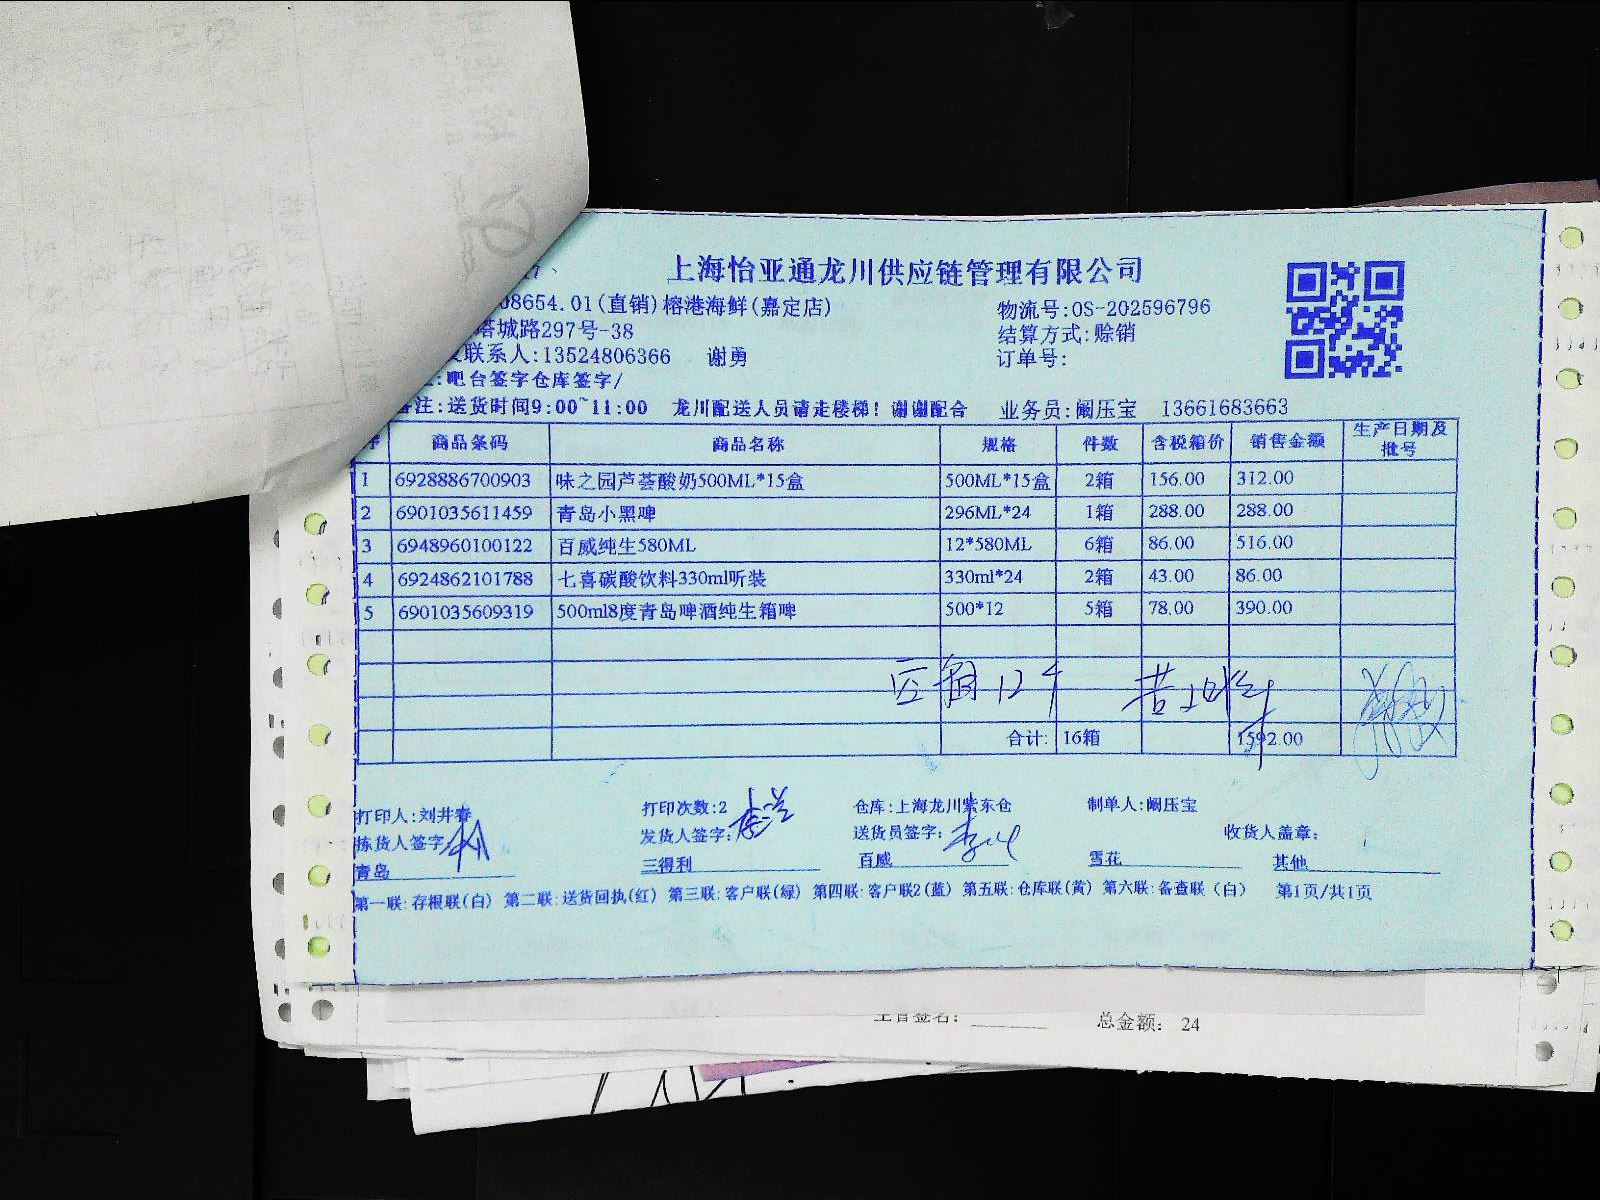 上海怡亚通龙川供应链管理有限公司
08654.01(直销)榕港海鲜(嘉定店) 物流号:OS-202596796
塔城路297号-38 结算方式:赊销
联系人:13524806366 谢勇 订单号:
:吧台签字仓库签字/
备注:送货时间9:00~11:00 龙川配送人员请走楼梯!谢谢配合 业务员:阚压宝 13661683663
商品条码 商品名称 规格 件数 含税箱价 销售金额 生产日期及批号
1 6928886700903 味之园芦荟酸奶500ML*15盒 500ML*15盒 2箱 156.00 312.00
2 6901035611459 青岛小黑啤 296ML*24 1箱 288.00 288.00
3 6948960100122 百威纯生580ML 12*580ML 6箱 86.00 516.00
4 6924862101788 七喜碳酸饮料330ml听装 330ml*24 2箱 43.00 86.00
5 6901035609319 500ml8度青岛啤酒纯生箱啤 500*12 5箱 78.00 390.00
合计: 16箱 1592.00
打印人:刘井春 打印次数:2 仓库:上海龙川紫东仓 制单人:阚压宝
拣货人签字: 发货人签字: 送货员签字: 收货人盖章:
青岛 三得利 百威 雪花 其他
第一联:存根联(白) 第二联:送货回执(红) 第三联:客户联(绿) 第四联:客户联2(蓝) 第五联:仓库联(黄) 第六联:备查联(白) 第1页/共1页
总金额: 24